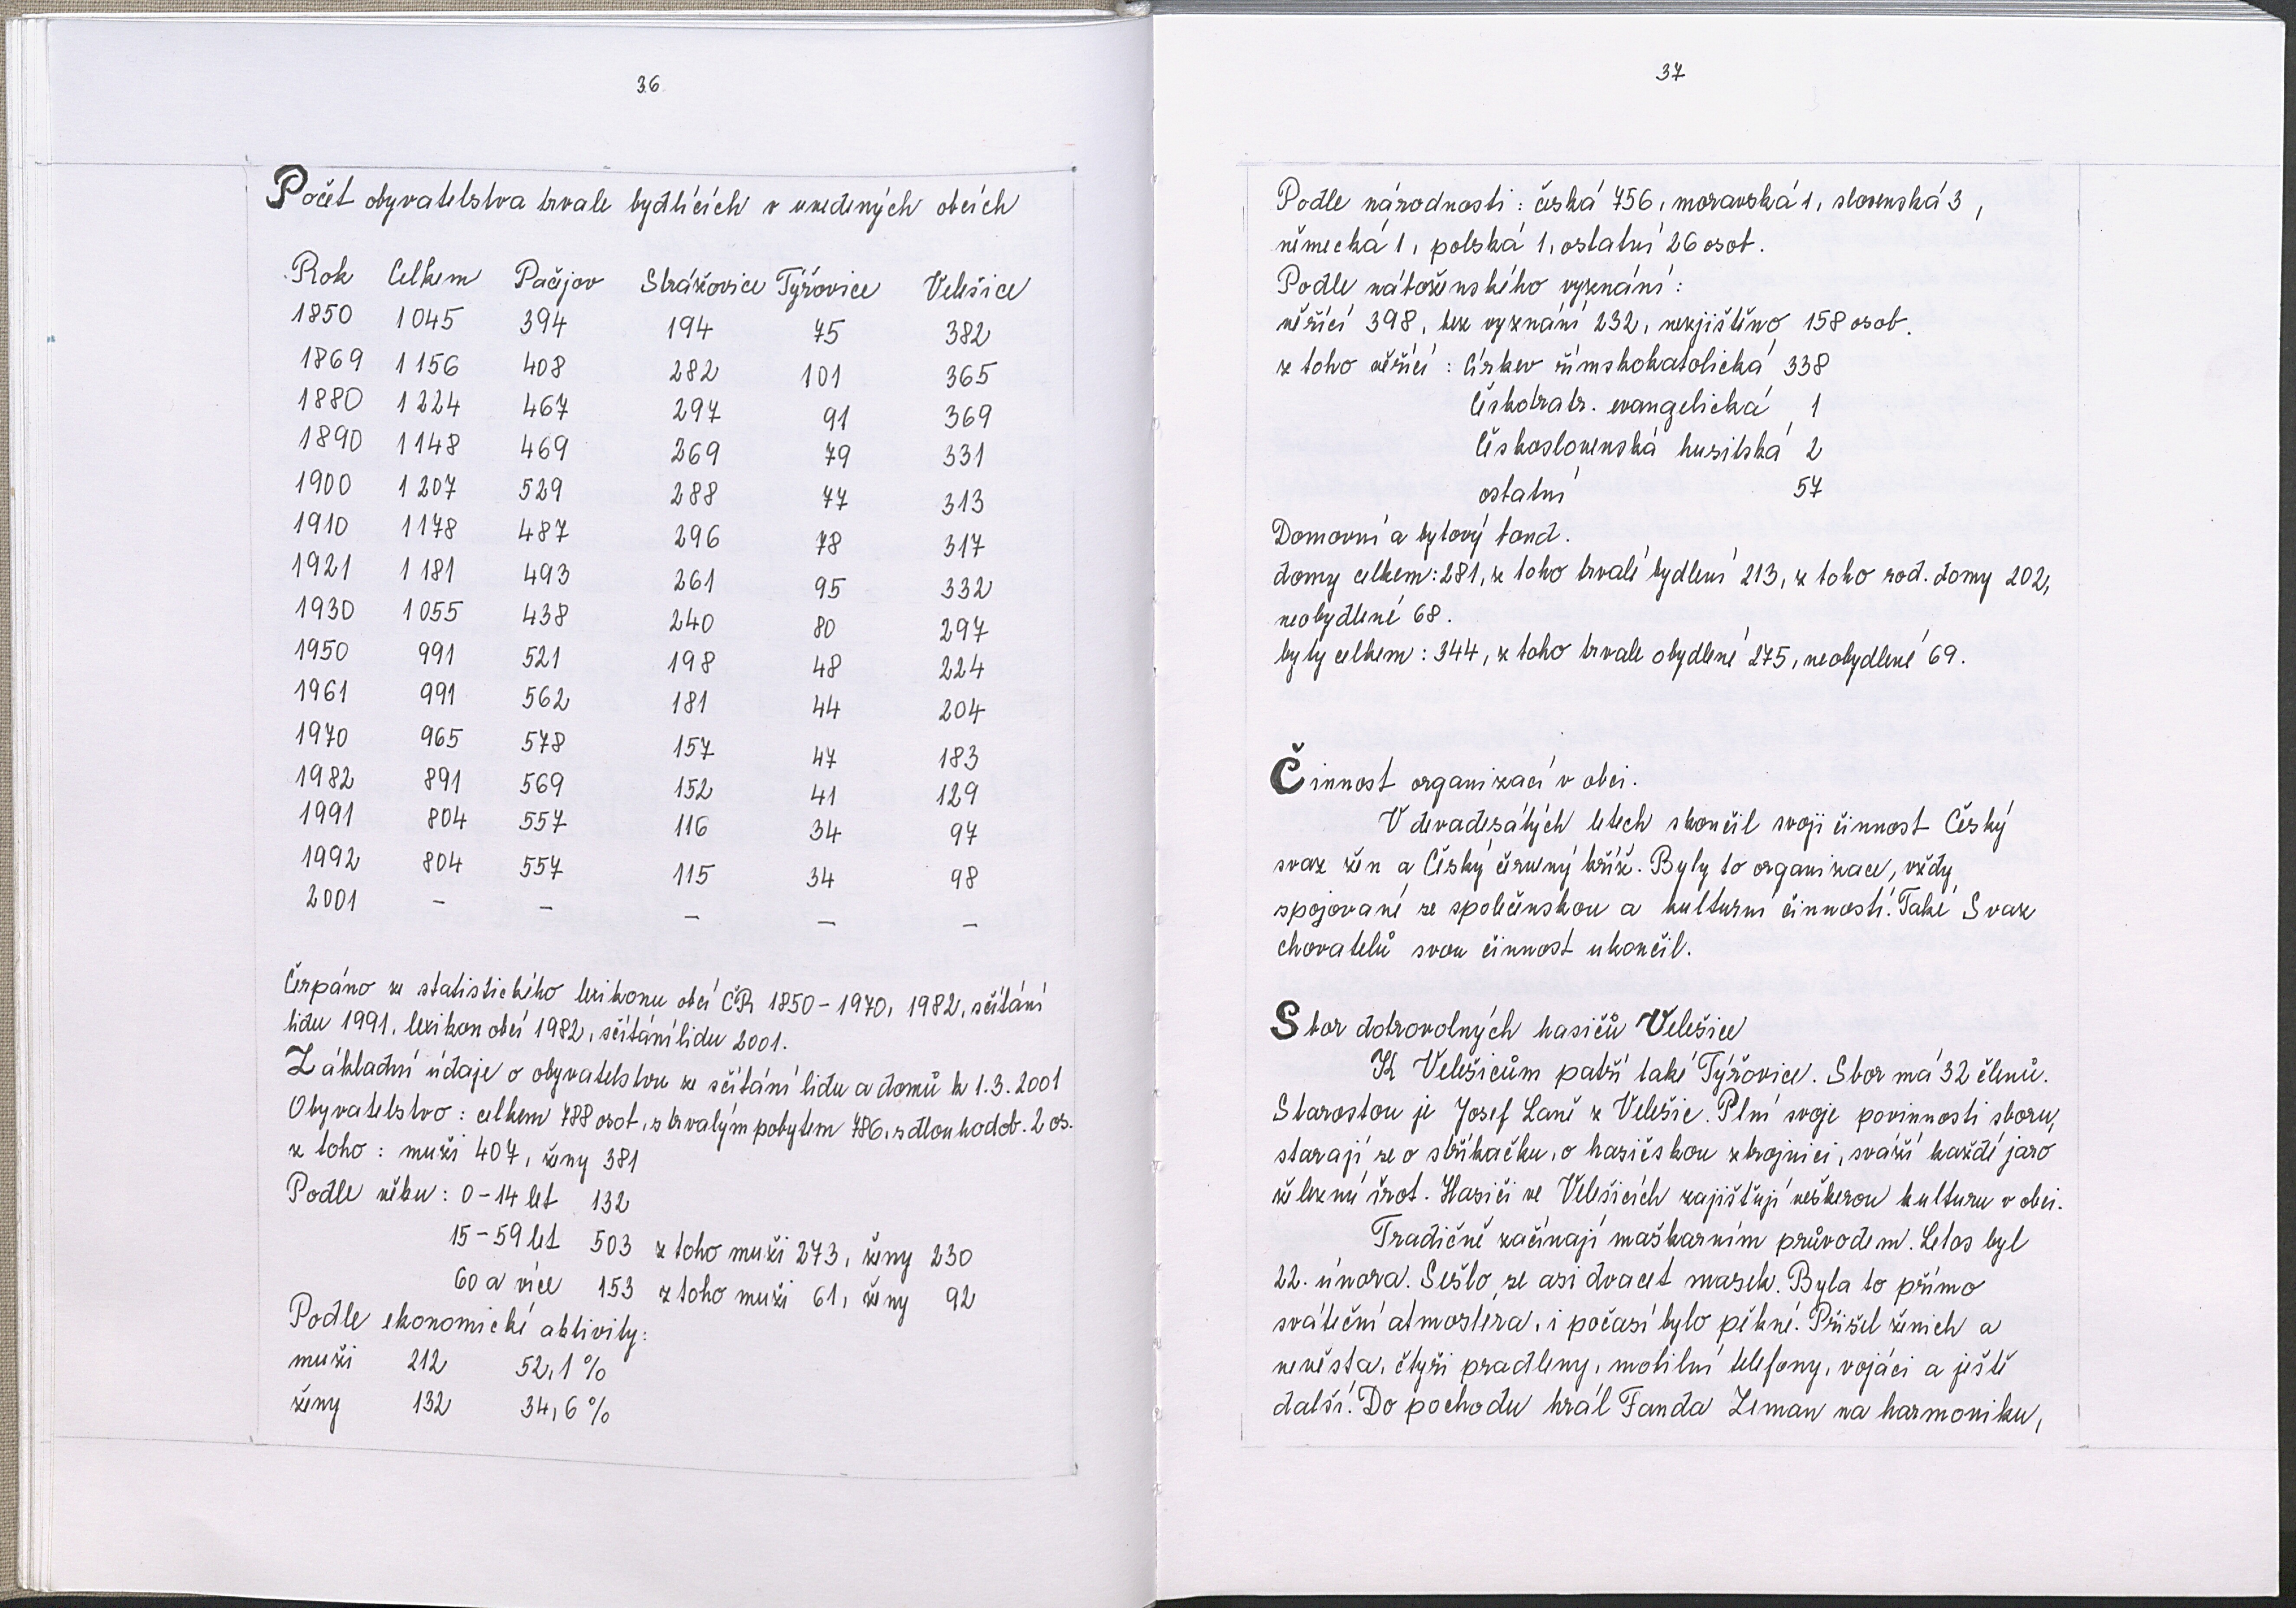 36
Počet obyvatelstva trvale bydlících v uvedených obcích
Rok Celkem Pačejov Strážovice Týřovice Velešice
1850 1045 394 194 75 382
1869 1156 408 282 101 365
1880 1224 467 297 91 369
1890 1148 469 269 79 331
1900 1207 529 288 77 313
1910 1178 487 296 78 317
1921 1181 493 261 95 332
1930 1055 438 240 80 297
1950 991 521 198 48 224
1961 991 562 181 44 204
1970 965 578 157 47 183
1982 891 569 152 41 129
1991 804 557 116 34 97
1992 804 557 115 34 98
2001 – – – – –
Čerpáno ze statistického lexikonu obcí ČR 1850–1970, 1982, sčítání
lidu 1991, lexikon obcí 1982, sčítání lidu 2001.
Základní údaje o obyvatelstvu ze sčítání lidu a domů k 1.3.2001
Obyvatelstvo: celkem 788 osob, s trvalým pobytem 786, s dlouhodob. 2 os.
z toho: muži 407, ženy 381
Podle věku: 0–14 let 132
15–59 let 503 z toho muži 273, ženy 230
60 a více 153 z toho muži 61, ženy 92
Podle ekonomické aktivity:
muži 212 52,1 %
ženy 132 34,6 %
37
Podle národnosti: česká 756, moravská 1, slovenská 3,
německá 1, polská 1, ostatní 26 osob.
Podle náboženského vyznání:
věřící 398, bez vyznání 232, nezjištěno 158 osob.
z toho věřící: Církev římskokatolická 338
Českobratr. evangelická 1
Československá husitská 2
ostatní 57
Domovní a bytový fond.
domy celkem: 281, z toho trvalé bydlení 213, z toho rod. domy 202,
neobydlené 68.
byty celkem: 344, z toho trvale obydlené 275, neobydlené 69.
Činnost organizací v obci.
V devadesátých letech skončil svoji činnost Český
svaz žen a Český červený kříž. Byly to organizace, vždy
spojované se společenskou a kulturní činností. Také Svaz
chovatelů svou činnost ukončil.
Sbor dobrovolných hasičů Velešice
K Velešicům patří také Týřovice. Sbor má 32 členů.
Starostou je Josef Laně z Velešic. Plní svoje povinnosti sboru,
starají se o stříkačku, o hasičskou zbrojnici, sváží každé jaro
železný šrot. Hasiči ve Velešicích zajišťují veškerou kulturu v obci.
Tradičně začínají maškarním průvodem. Letos byl
22. února. Sešlo se asi dvacet masek. Byla to přímo
sváteční atmosféra, i počasí bylo pěkné. Přišel ženich a
nevěsta, čtyři pradleny, mobilní telefony, vojáci a ještě
další. Do pochodu hrál Fanda Zeman na harmoniku,